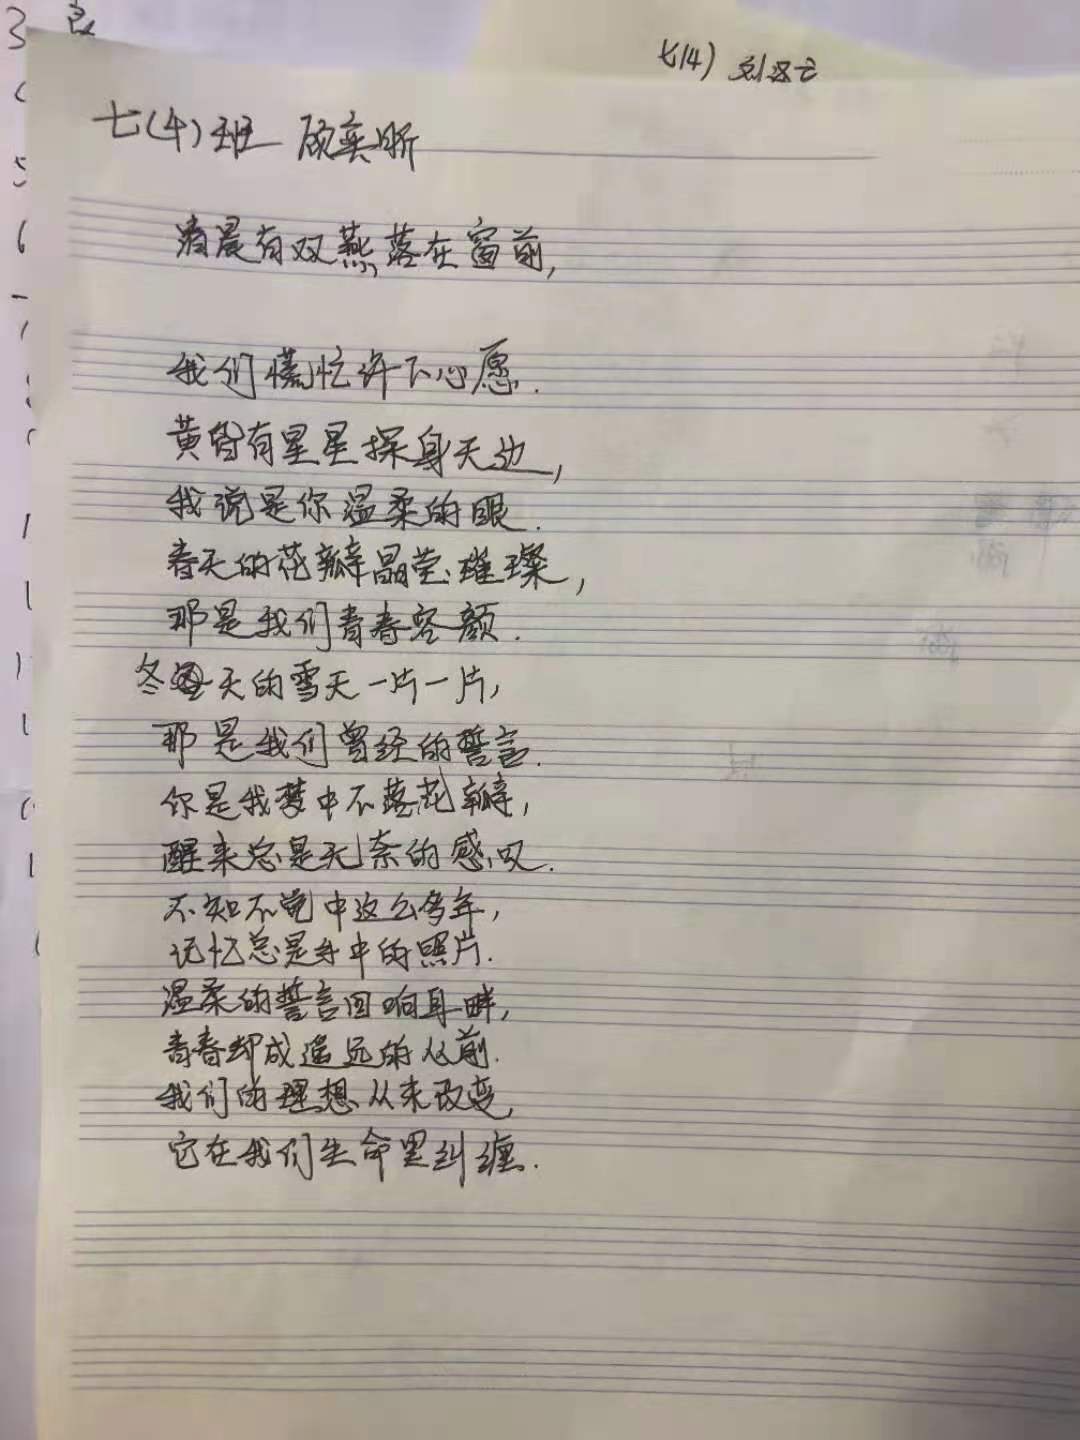 七(4)
七(4)班 顾奕昕
清晨有双燕落在窗前,
我们慌忙许下心愿.
黄昏有星星探身天边,
我说是你温柔的眼.
春天的花瓣晶莹璀璨,
那是我们青春容颜.
冬天的雪天一片一片,
那是我们曾经的誓言.
你是我梦中不落花瓣,
醒来总是无奈的感叹.
不知不觉中这么多年,
记忆总是手中的照片.
温柔的誓言回响耳畔,
青春却成遥远的从前.
我们的理想从来改变,
它在我们生命里纠缠.